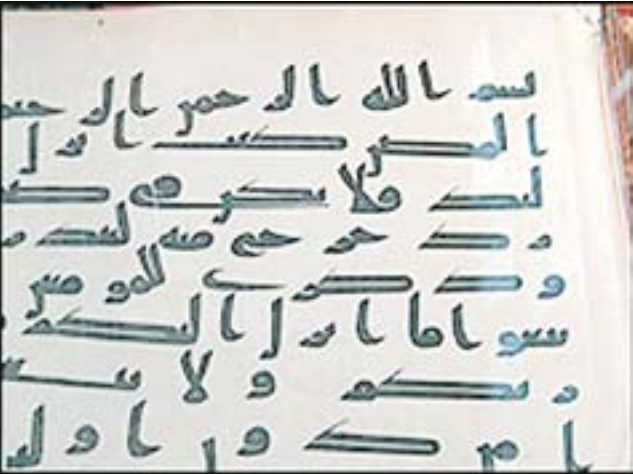 بسم الله الرحمن الرحيم
المص كتب انزل
ليك فلا يكن في صد
رك حرج منه لتنذر
وذكرى للمومنين
بعوا ما انزل اليكم
ربكم ولا تتبـ
ا من دو اوليـ